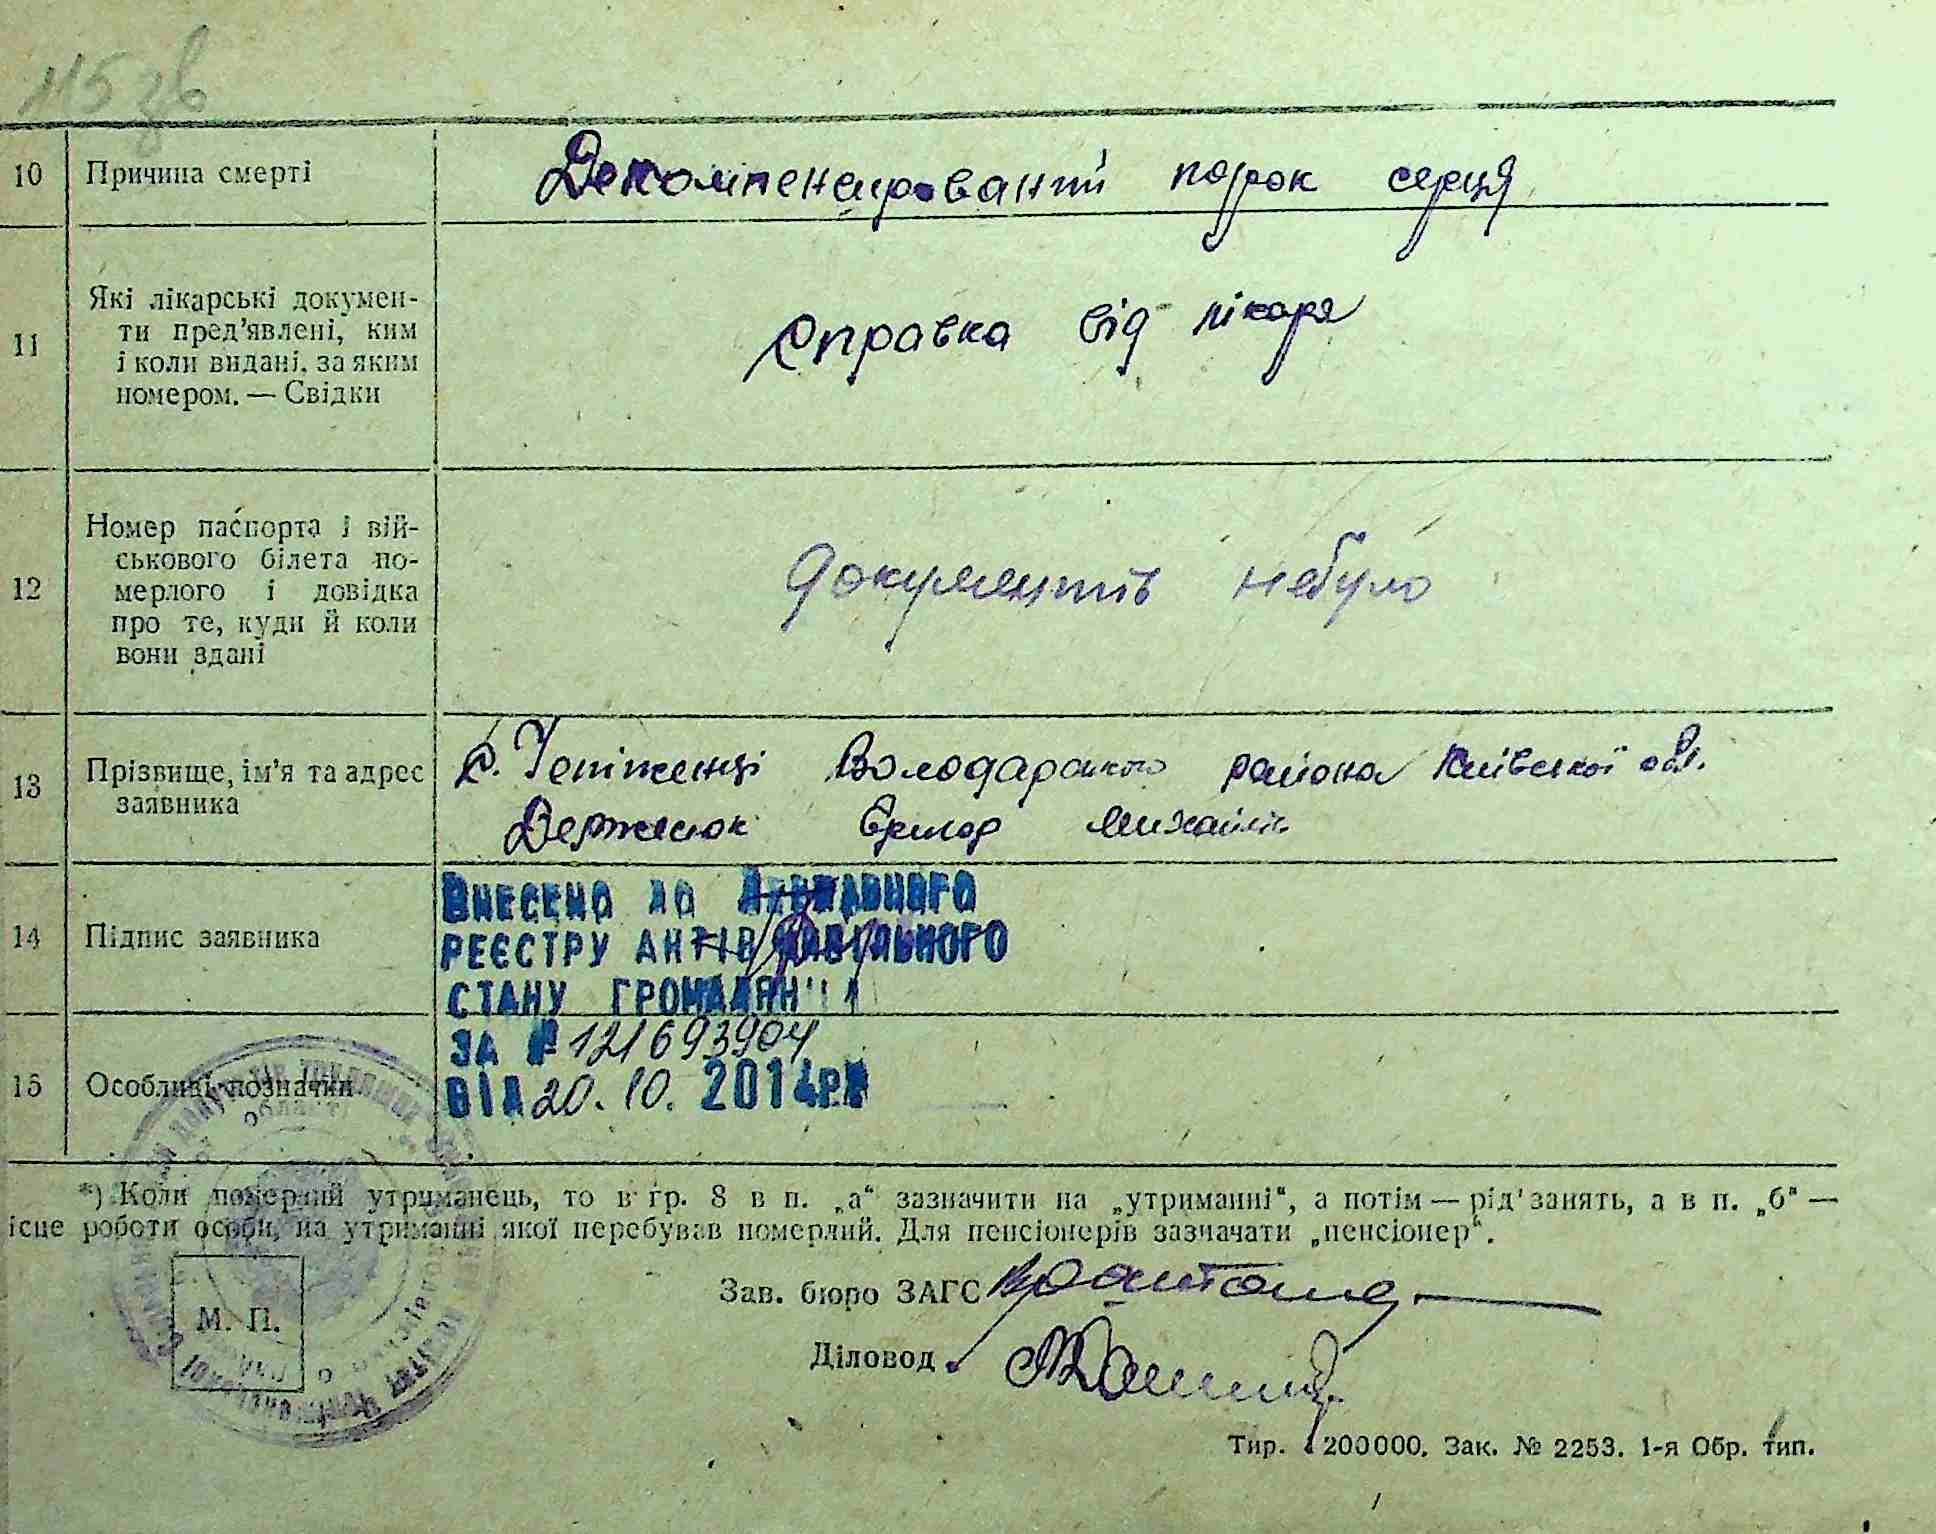 115зв
10 Причина смерті Декомпенсированій порок серця
11 Які лікарські докумен-
ти пред'явлені, ким
і коли видані, за яким
номером. — Свідки
справка від лікаря
12 Номер паспорта і вій-
ськового білета по-
мерлого і довідка
про те, куди й коли
вони здані
Документів небуло
13 Прізвище, ім'я та адрес
заявника
с. Тетіженці Володарського района Київської обл.
Держенюк Михайлів
14 Підпис заявника
ВНЕСЕНО ДО ДЕРЖАВНОГО
РЕЄСТРУ АКТІВ ЦИВІЛЬНОГО
СТАНУ ГРОМАДЯН
ЗА № 121693904
ВІД 20.10. 2014р
15 Особливі позначки
*) Коли померлий утриманець, то в гр. 8 в п. „а“ зазначити на „утриманні“, а потім — рід занять, а в п. „б“ —
ісце роботи особи, на утриманні якої перебував померлий. Для пенсіонерів зазначати „пенсіонер“.
М. П.
Зав. бюро ЗАГС
Діловод
Тир. 200000. Зак. № 2253. 1-я Обр. тип.